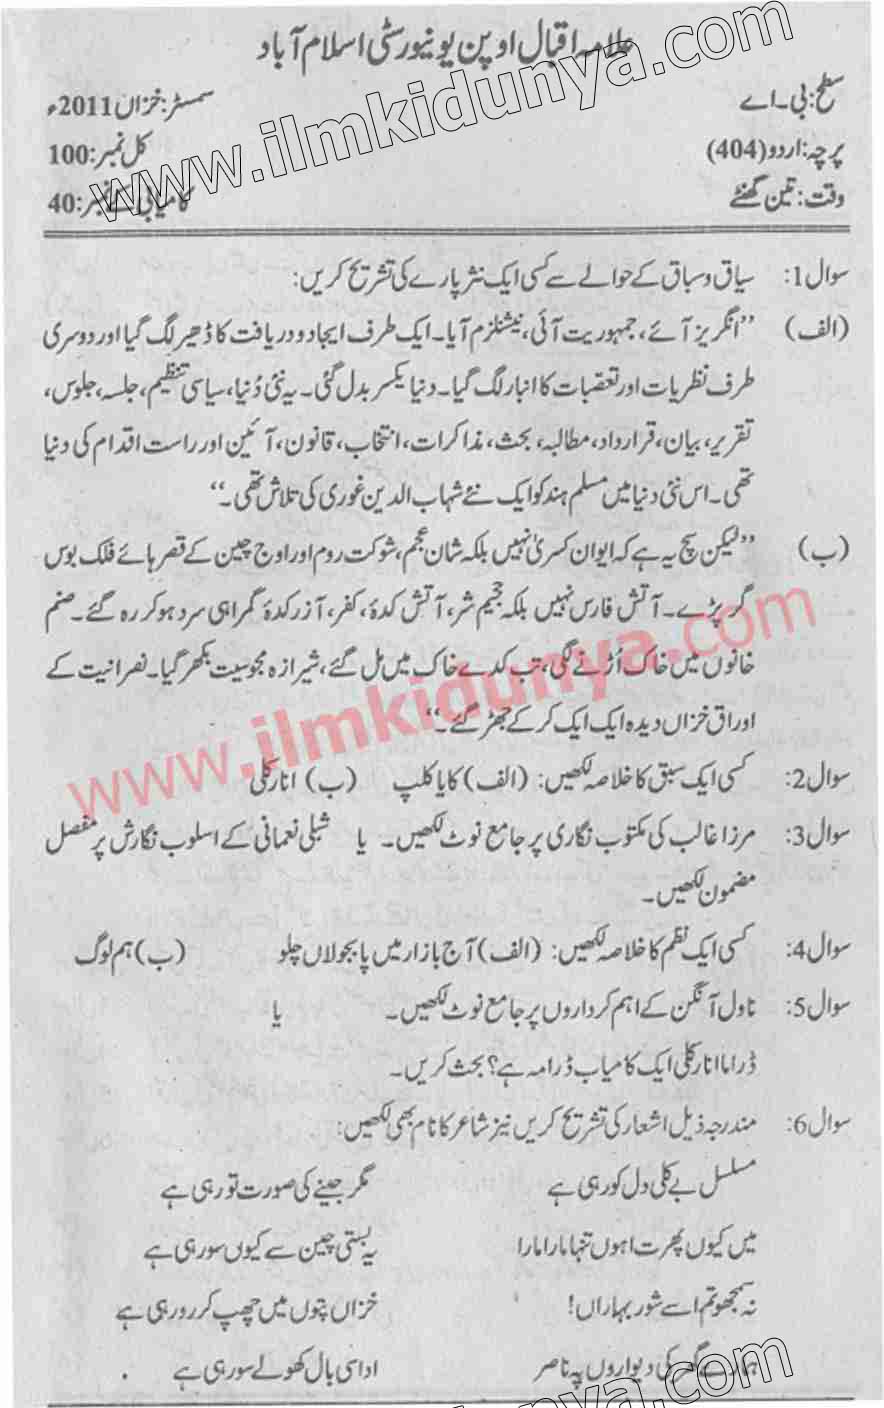 علامہ اقبال اوپن یونیورسٹی اسلام آباد
سطح: بی۔اے سمسٹر: خزاں 2011ء
پرچہ: اردو (404) کل نمبر: 100
وقت: تین گھنٹے کامیابی کے نمبر: 40
www.ilmkidunya.com
سوال 1: سیاق و سباق کے حوالے سے کسی ایک نثر پارے کی تشریح کریں:
(الف) ”انگریز آئے، جمہوریت آئی، نیشنلزم آیا۔ ایک طرف ایجاد و دریافت کا ڈھیر لگ گیا اور دوسری
طرف نظریات اور تعصبات کا انبار لگ گیا۔ دنیا یکسر بدل گئی۔ یہ نئی دُنیا، سیاسی تنظیم، جلسہ، جلوس،
تقریر، بیان، قرارداد، مطالبہ، بحث، مذاکرات، انتخاب، قانون، آئین اور راست اقدام کی دنیا
تھی۔ اس نئی دنیا میں مسلم ہند کو ایک نئے شہاب الدین غوری کی تلاش تھی۔“
(ب) ”لیکن سچ یہ ہے کہ ایوان کسریٰ نہیں بلکہ شان عجم، شوکت روم اور اوج چین کے قصر ہائے فلک بوس
گر پڑے۔ آتش فارس نہیں بلکہ جحیم شر، آتش کدۂ، کفر، آزر کدۂ گمراہی سرد ہو کر رہ گئے۔ صنم
خانوں میں خاک اُڑنے لگی، بت کدے خاک میں مل گئے، شیرازہ مجوسیت بکھر گیا۔ نصرانیت کے
اوراق خزاں دیدہ ایک ایک کر کے جھڑ گئے۔“
www.ilmkidunya.com
سوال 2: کسی ایک سبق کا خلاصہ لکھیں: (الف) کایا کلپ (ب) انارکلی
سوال 3: مرزا غالب کی مکتوب نگاری پر جامع نوٹ لکھیں۔ یا شبلی نعمانی کے اسلوب نگارش پر مفصل
مضمون لکھیں۔
سوال 4: کسی ایک نظم کا خلاصہ لکھیں: (الف) آج بازار میں پابجولاں چلو (ب) ہم لوگ
سوال 5: ناول آنگن کے اہم کرداروں پر جامع نوٹ لکھیں۔ یا
ڈراما انارکلی ایک کامیاب ڈرامہ ہے؟ بحث کریں۔
سوال 6: مندرجہ ذیل اشعار کی تشریح کریں نیز شاعر کا نام بھی لکھیں:
مسلسل بے کلی دل کو رہی ہے مگر جینے کی صورت تو رہی ہے
میں کیوں پھرتا ہوں تنہا مارا مارا یہ بستی چین سے کیوں سو رہی ہے
نہ سمجھو تم اسے شور بہاراں! خزاں پتوں میں چھپ کر رو رہی ہے
ہمارے گھر کی دیواروں پہ ناصر اداسی بال کھولے سو رہی ہے